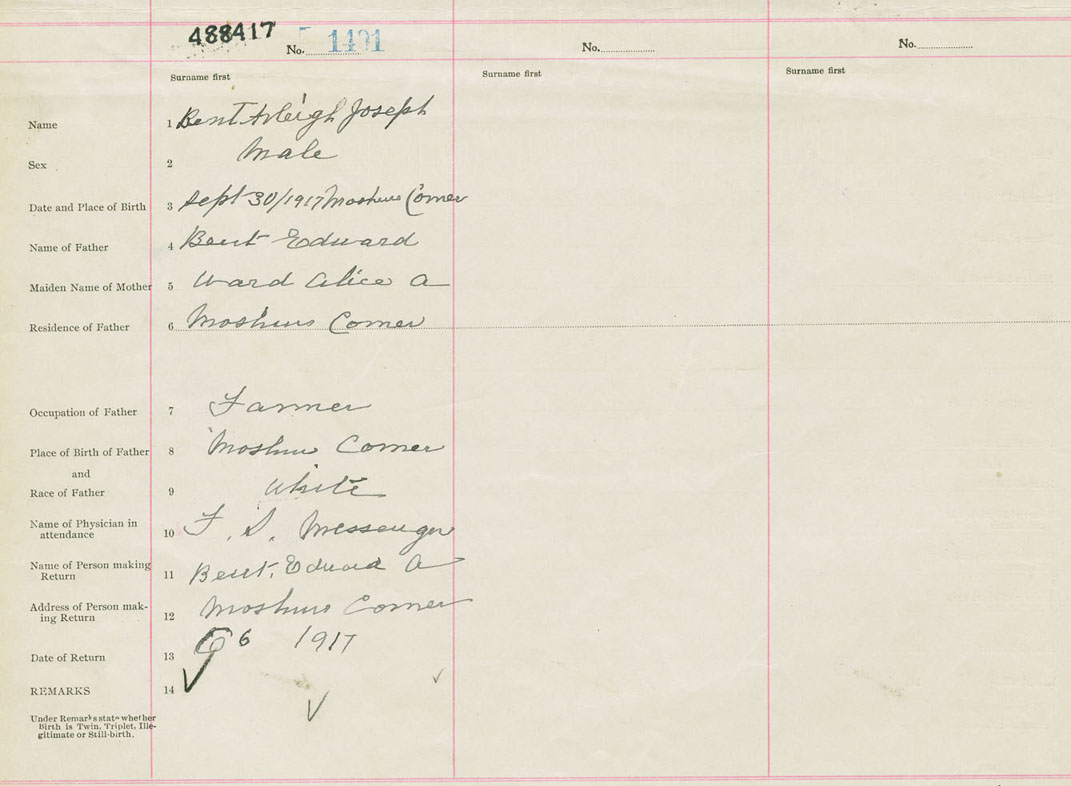 488417
No. 1491 No. No.
Surname first Surname first Surname first
Name 1 Bent Arleigh Joseph
Sex 2 Male
Date and Place of Birth 3 Sept 30/1917 Moshers Corner
Name of Father 4 Bent Edward
Maiden Name of Mother 5 Ward Alice A
Residence of Father 6 Moshers Corner
Occupation of Father 7 Farmer
Place of Birth of Father 8 Moshers Corner
and
Race of Father 9 White
Name of Physician in
attendance 10 F. S. Messenger
Name of Person making
Return 11 Bent, Edward A
Address of Person mak-
ing Return 12 Moshers Corner
Date of Return 13 6 1917
REMARKS 14
Under Remarks state whether
Birth is Twin, Triplet, Ille-
gitimate or Still-birth.